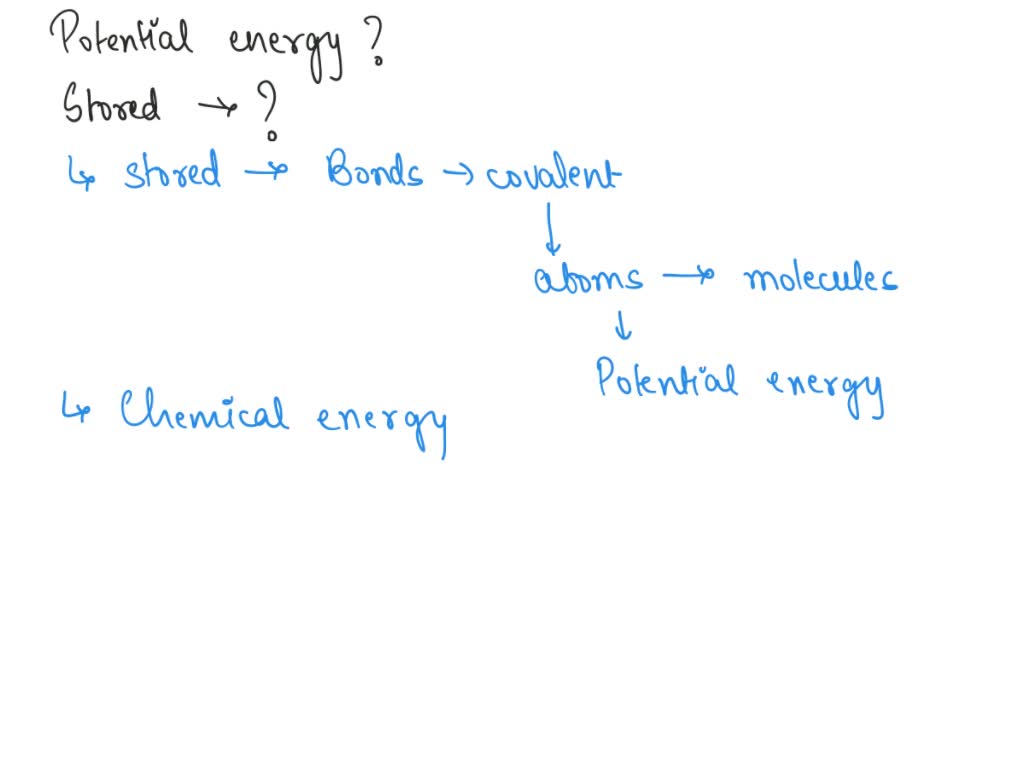 Potential energy?
Stored → ?
↳ stored → Bonds → covalent
↓
atoms → molecules
↓
Potential energy
↳ Chemical energy